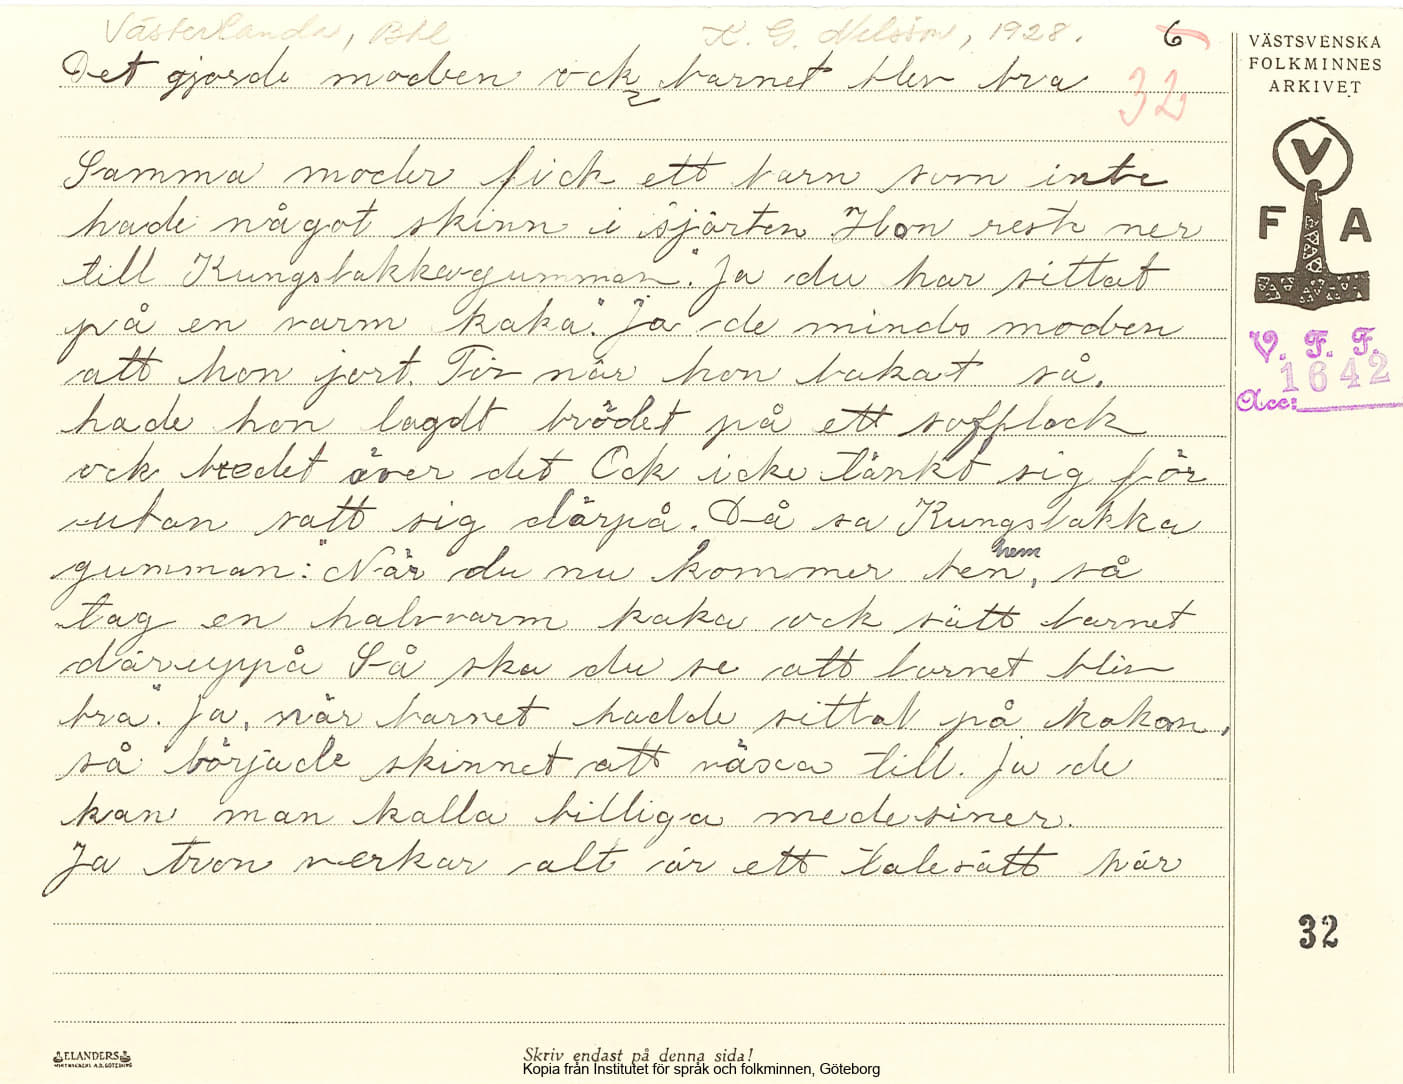 Västerlanda, Bhl K. G. Nelsson, 1928. 6
Det gjorde modren ock barnet blev bra 32
Samma moder fick ett barn som inte
hade något skinn i sjärten Hon reste ner
till Kungsbakkagumman". Ja du har sittat
på en varm kaka". "Ja de minds modren
att hon jort. För när hon bakat så.
hade hon lagdt brödet på ett sofflock
ock bredet över det Ock icke tänkt sig för
utan satt sig därpå. Då sa Kungsbakka
gumman: "När du nu kommer hem, så
tag en halvvarm kaka ock sätt barnet
däruppå Så ska du se att barnet bliv
bra". Ja, när barnet hadde sittat på kakan,
så började skinnet att växa till. Ja de
kan man kalla billiga medesiner.
Ja tron verkar alt är ett talesätt här
VÄSTSVENSKA
FOLKMINNES
ARKIVET
V
F A
V. F. F.
1642
Acc:
32
ELANDERS
Skriv endast på denna sida!
Kopia från Institutet för språk och folkminnen, Göteborg